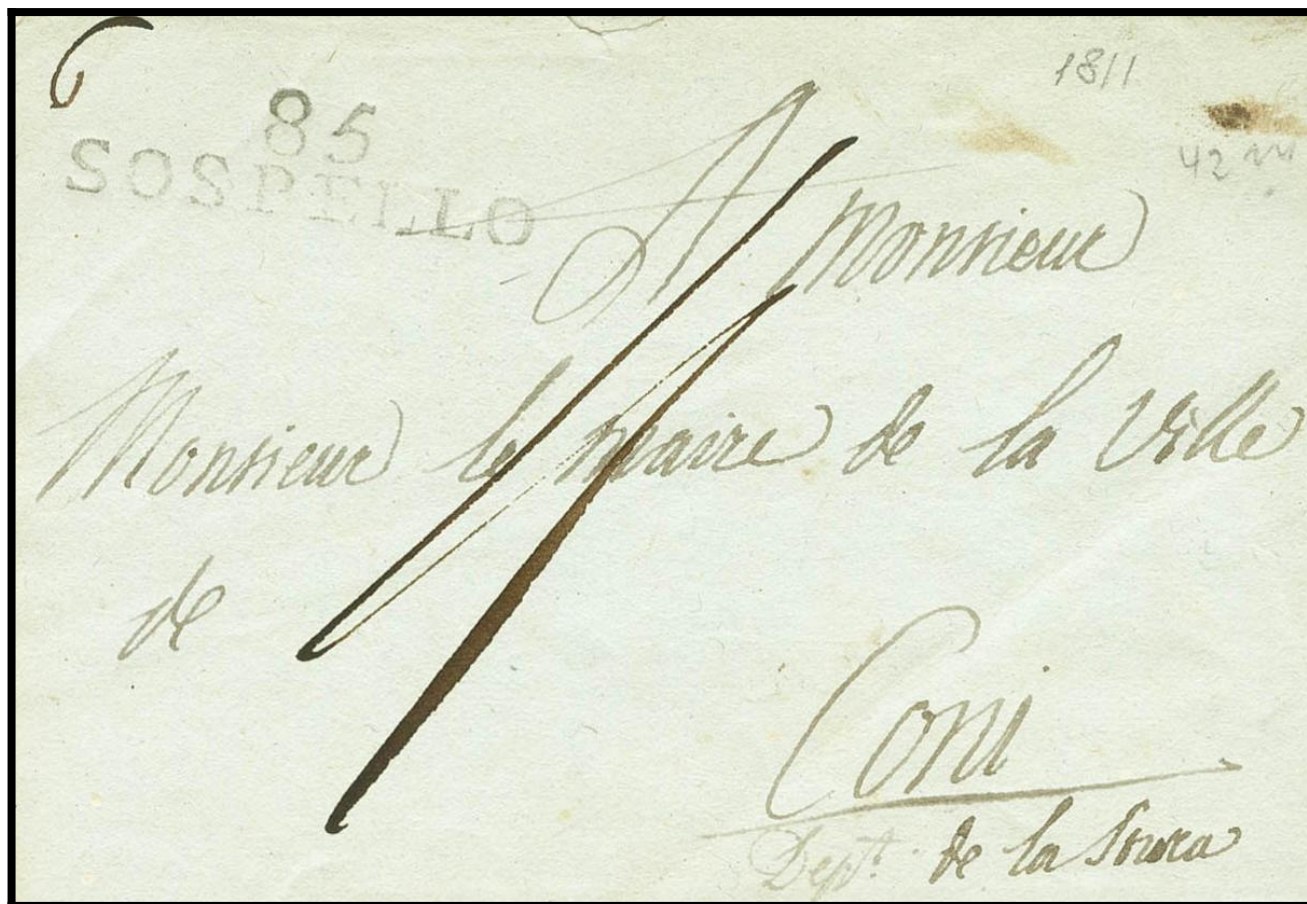 6
1811
85
SOSPELLO
A Monsieur
Monsieur le Maire de la Ville
de
Coni
Dept. de la Stura